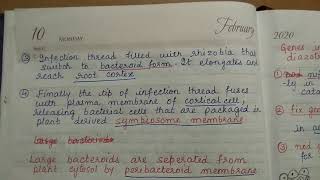 10
MONDAY
February
2020
③ Infection thread filled with rhizobia that
switch to bacteroid form. It elongates and
reach root cortex
④ Finally the tip of infection thread fuses
with plasma membrane of cortical cell,
releasing bacterial cells that are packaged in
plant derived symbiosome membrane
Large bacteroids are seperated from
plant cytosol by peribacteroid membrane
Genes in
diazot
① nod
② fix gen
in a
③ nod g
for